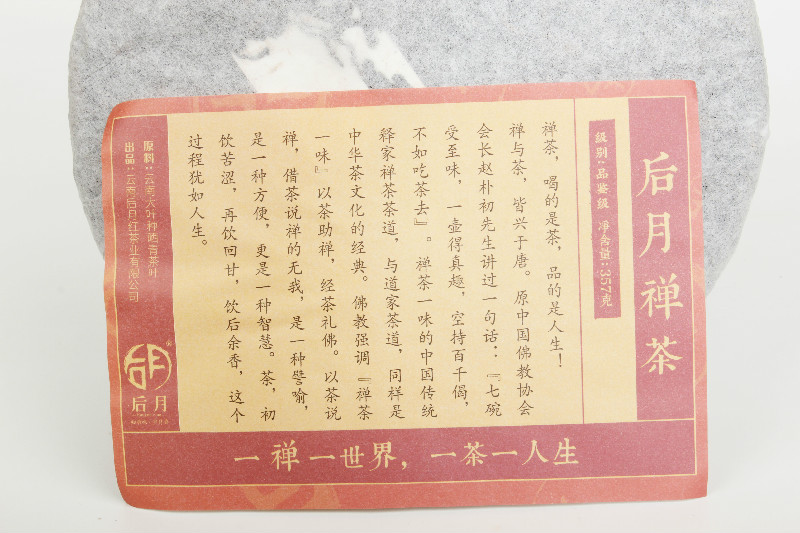 后月禅茶
级别:品鉴级 净含量:357克
禅茶，喝的是茶，品的是人生！
禅与茶，皆兴于唐。原中国佛教协会
会长赵朴初先生讲过一句话：『七碗
受至味，一壶得真趣，空持百千偈，
不如吃茶去』。禅茶一味的中国传统
释家禅茶茶道，与道家茶道，同样是
中华茶文化的经典。佛教强调『禅茶
一味』以茶助禅，经茶礼佛。以茶说
禅，借茶说禅的无我，是一种譬喻，
是一种方便，更是一种智慧。茶，初
饮苦涩，再饮回甘，饮后余香，这个
过程犹如人生。
原料:云南大叶种晒青茶叶
出品:云南后月红茶业有限公司
后月
一禅一世界，一茶一人生